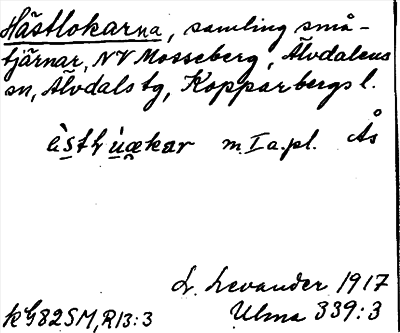 Hästlokarna, samling små-
tjärnar, NV Mosseberg, Älvdalens
sn, Älvdals tg, Kopparbergs l.
m. I a. pl. Ås
L. Levander 1917
kG82SM, R13:3 Ulma 339:3